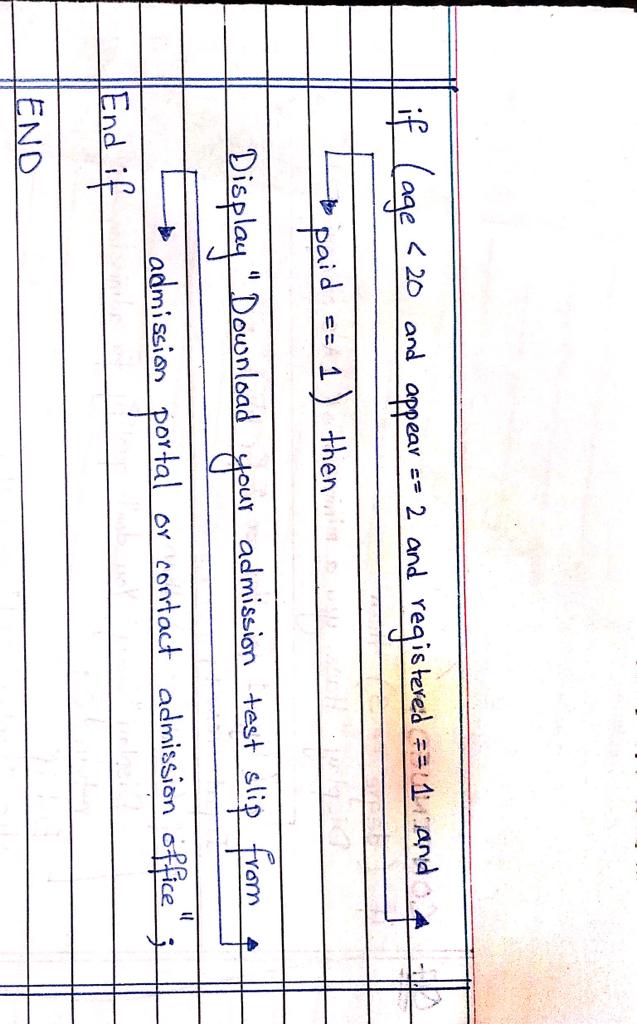 if (age < 20 and appear == 2 and registered == 1 and
paid == 1) then
Display "Download your admission test slip from
admission portal or contact admission office";
End if
END